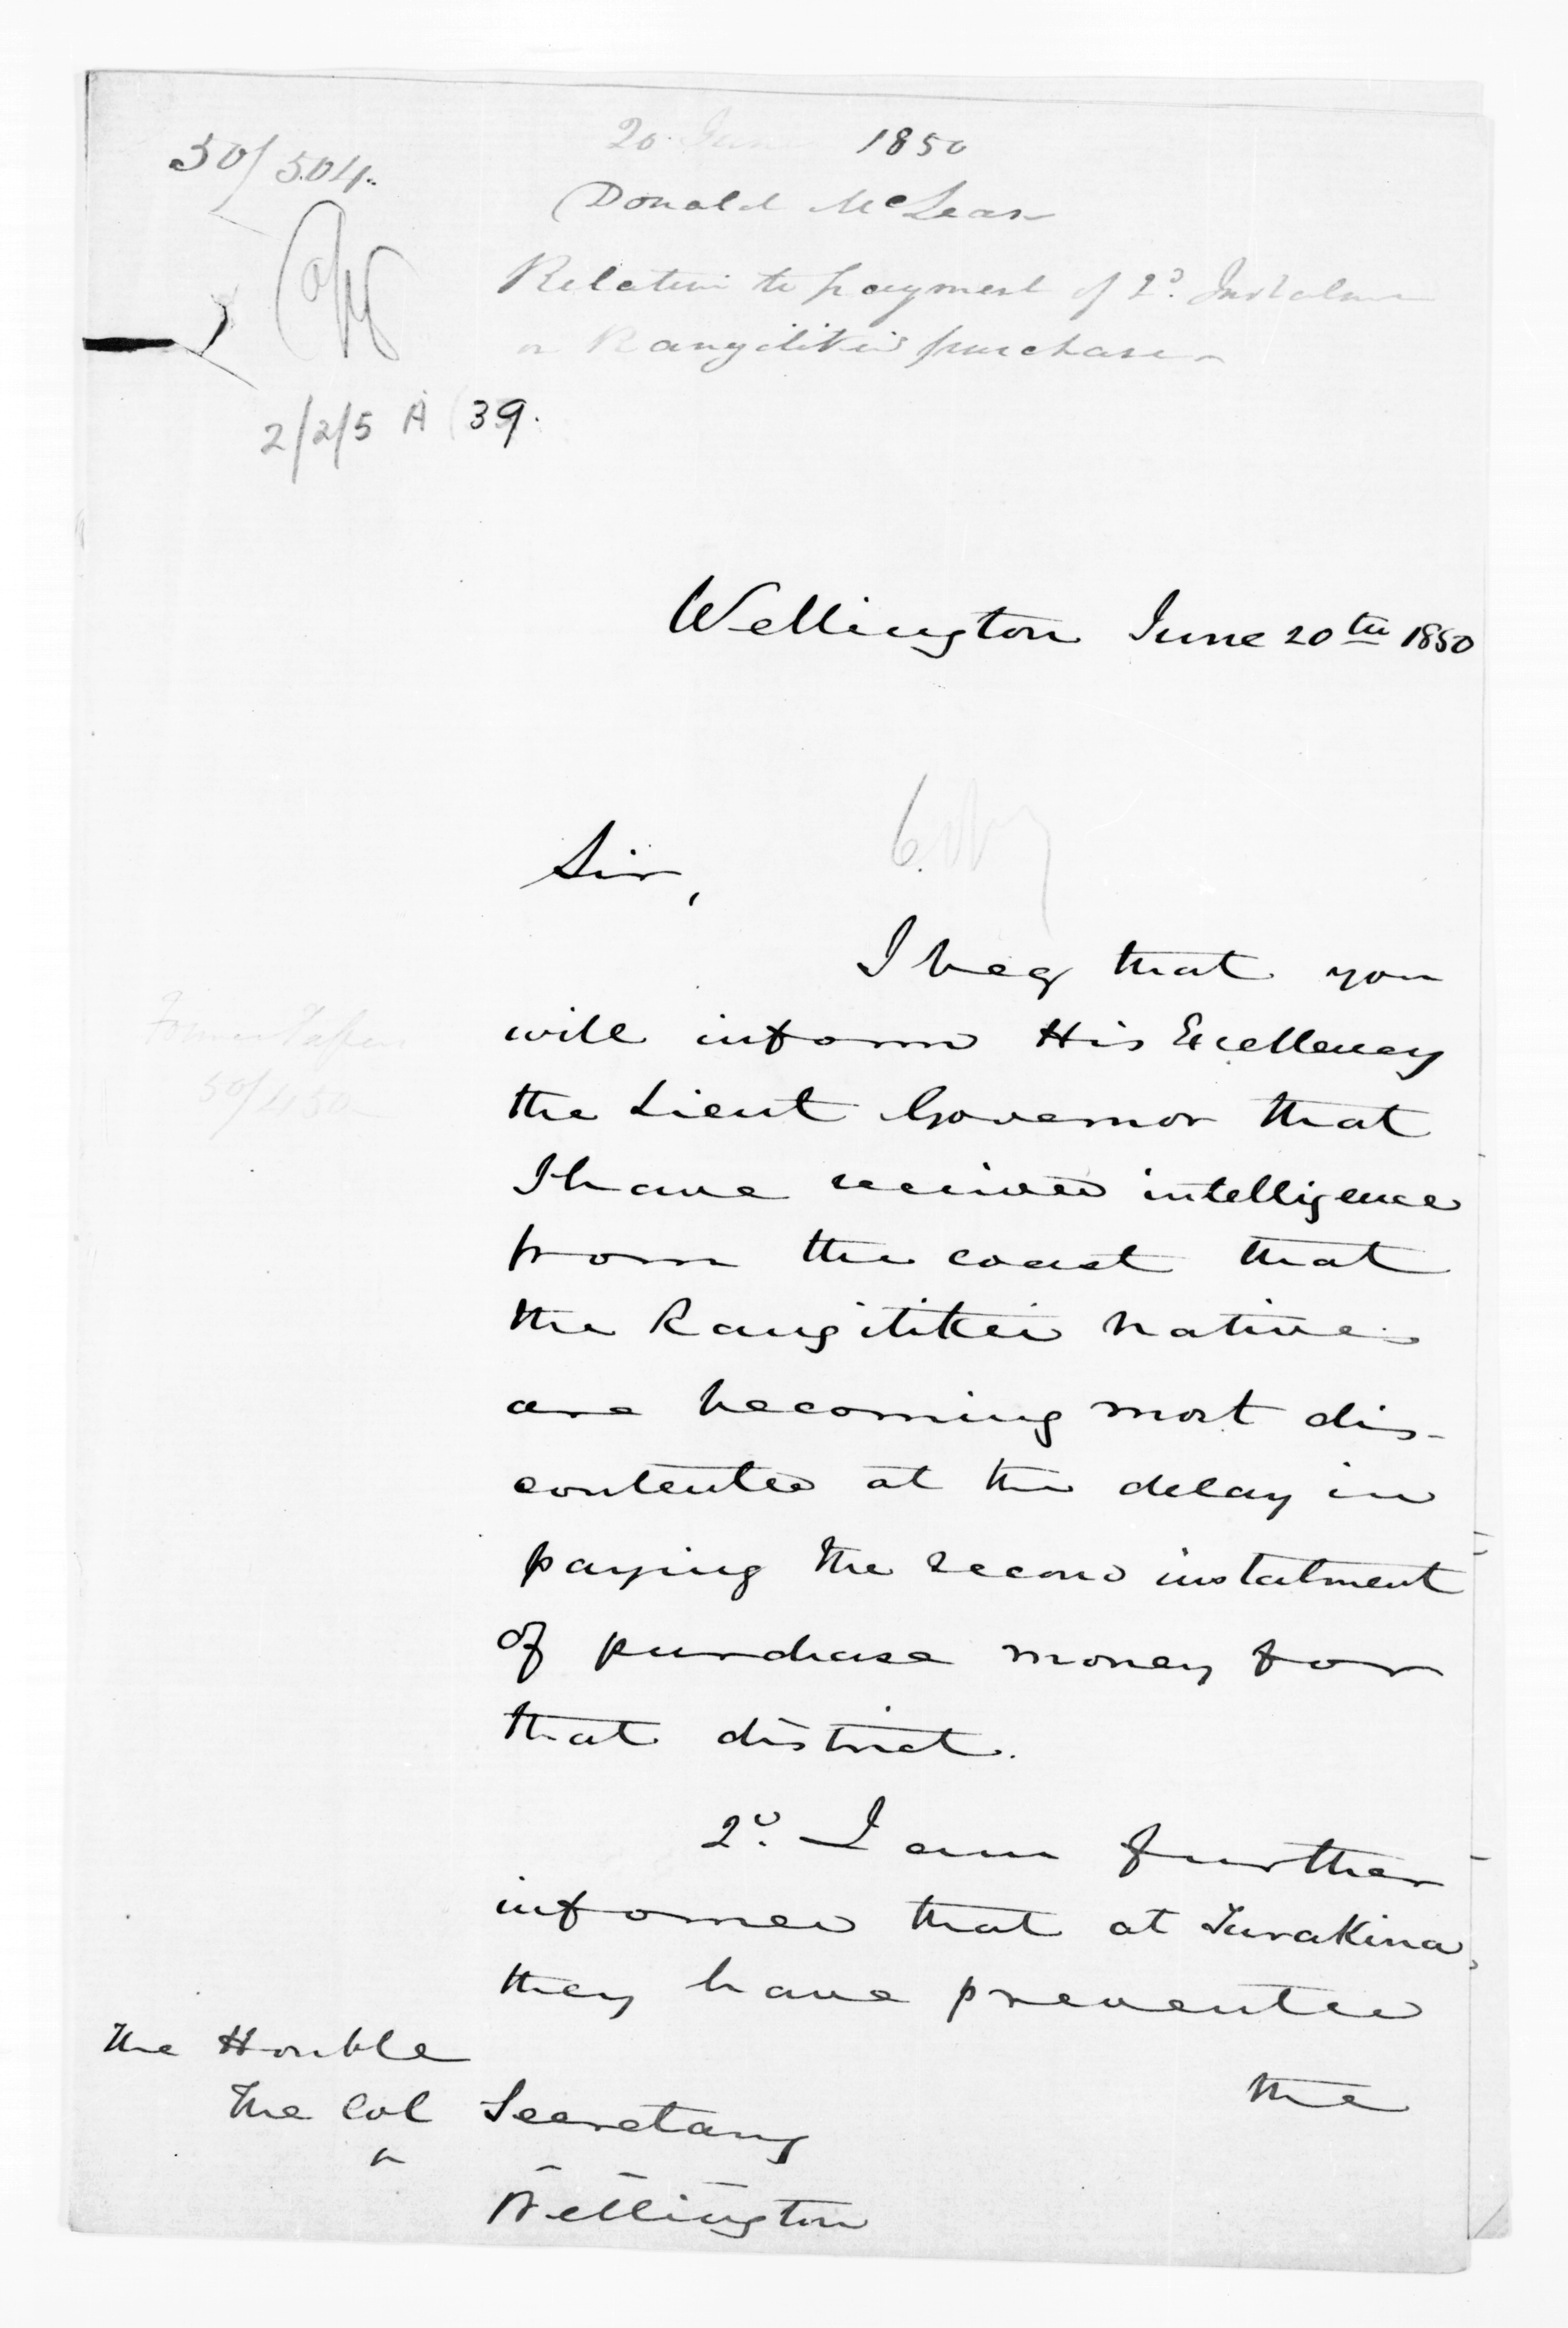 50/504.
20 June 1850
Donald McLean
Relative to payment of 2d. Instalment
on Rangitikei purchase
2/2/5 A (39.
Wellington June 20th 1850
Copy
Sir,
I beg that you
will inform His Excellency
the Lieut Governor that
I have received intelligence
from the coast that
the Rangitikei natives
are becoming most dis-
contented at the delay in
paying the second instalment
of purchase money for
that district.
Former Paper
50/450
2d. I am further
informed that at Turakina,
they have prevented
the
The Honble
The Col Secretary
Wellington